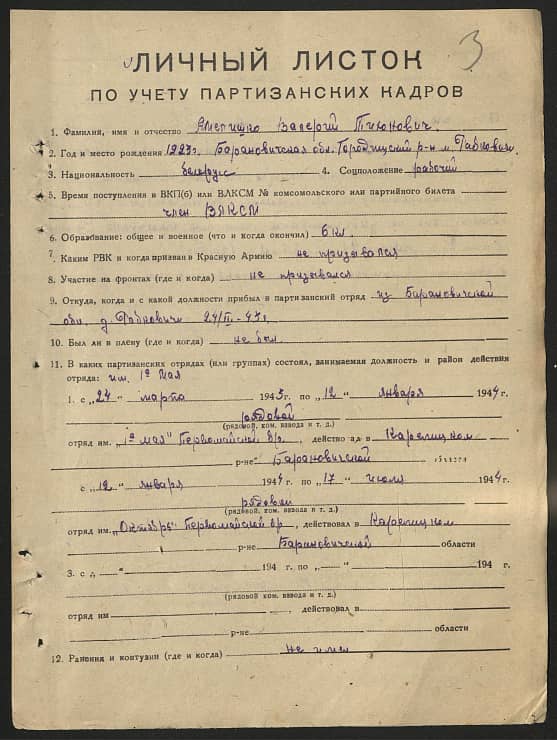 3
ЛИЧНЫЙ ЛИСТОК
ПО УЧЕТУ ПАРТИЗАНСКИХ КАДРОВ
1. Фамилия, имя и отчество Валерий Тихонович.
2. Год и место рождения 1923г. Барановичская обл. Городищский р-н
3. Национальность белорус 4. Соцположение рабочий
5. Время поступления в ВКП(б) или ВЛКСМ № комсомольского или партийного билета
член ВЛКСМ
6. Образование: общее и военное (что и когда окончил) 6 кл.
7. Каким РВК и когда призван в Красную Армию не призывался
8. Участие на фронтах (где и когда) не призывался
9. Откуда, когда и с какой должности прибыл в партизанский отряд из Барановичской
обл. д. 24/III-43г.
10. Был ли в плену (где и когда) не был
11. В каких партизанских отрядах (или группах) состоял, занимаемая должность и район действия
отряда: им. 1ое Мая
1. с „24" марта 1943 г. по „12" января 1944 г.
рядовой
(рядовой, ком. взвода и т. д.)
отряд им. „1ое мая" Первомайской бр., действовал в Карелицком
р-не Барановичской области
с „12" января 1944 г. по „17" июля 1944 г.
рядовой
(рядовой, ком. взвода и т. д.)
отряд им. „Октябрь" Первомайской бр., действовал в Карелицком
р-не Барановичской области
3. с „ " 194 г. по „ " 194 г.
(рядовой, ком. взвода и т. д.)
отряд им действовал в
р-не области
12. Ранения и контузии (где и когда) не имел